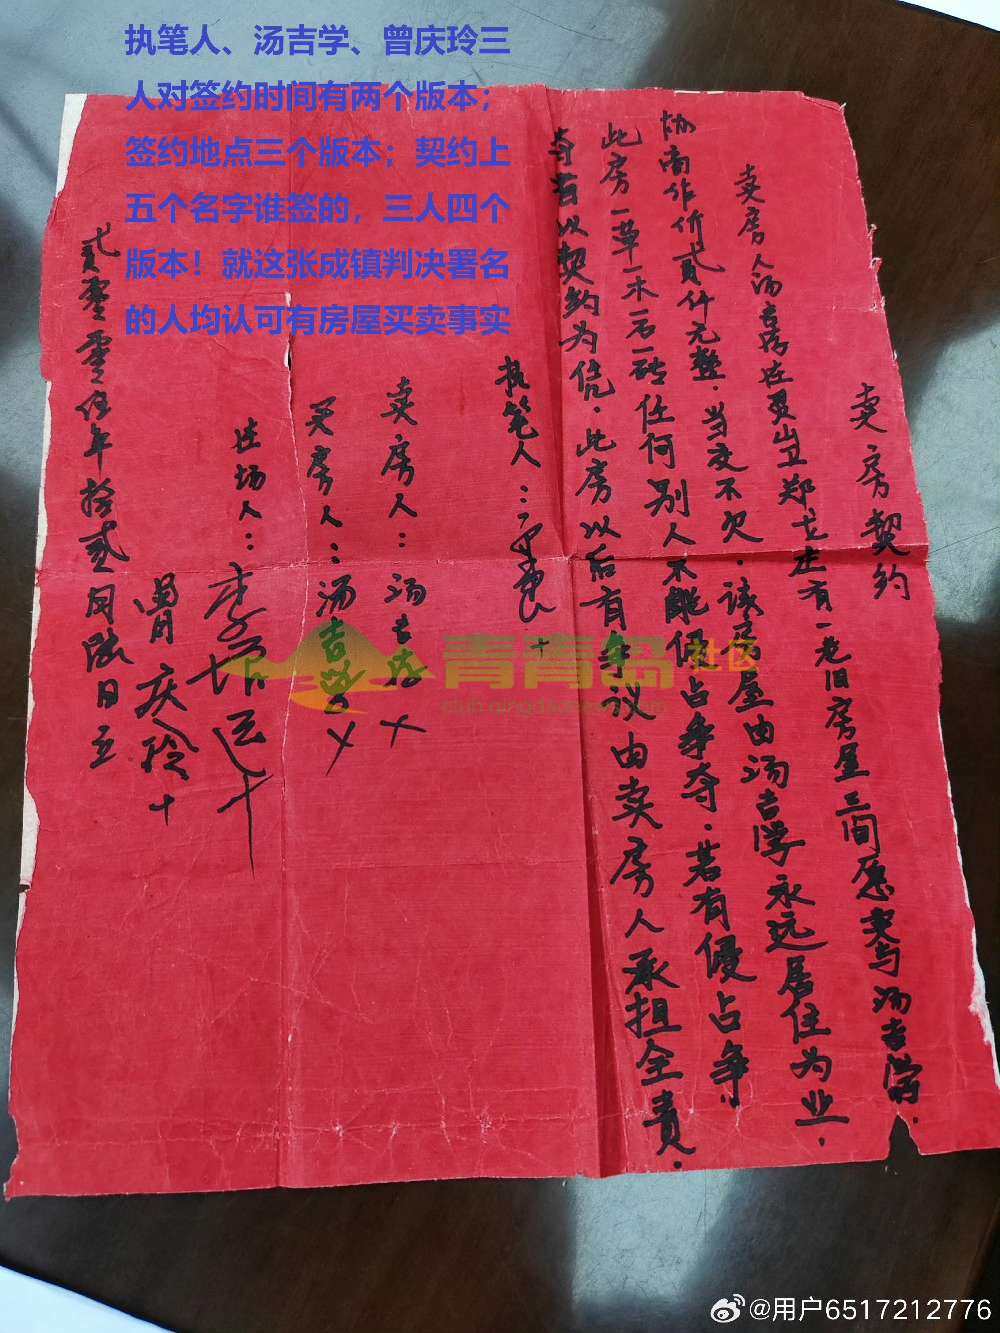 执笔人、汤吉学、曾庆玲三
人对签约时间有两个版本；
签约地点三个版本；契约上
五个名字谁签的，三人四个
版本！就这张成镇判决署名
的人均认可有房屋买卖事实
卖房契约
卖房人汤吉 在灵山卫郑戈庄有一老旧房屋三间愿卖与汤吉学.
协商作价贰仟元整.当交不欠.该房屋由汤吉学永远居住为业,
此房一草一木一石一砖任何别人不能侵占争夺.若有侵占争,
夺者以契约为凭.此房以后有争议由卖房人承担全责.
执笔人:
卖房人:汤吉 x
买房人:汤吉学 x
在场人:李 十
曾庆玲十
贰零零伍年拾贰月陆日立
青青岛社区
club.qingdaonews.com
@用户6517212776